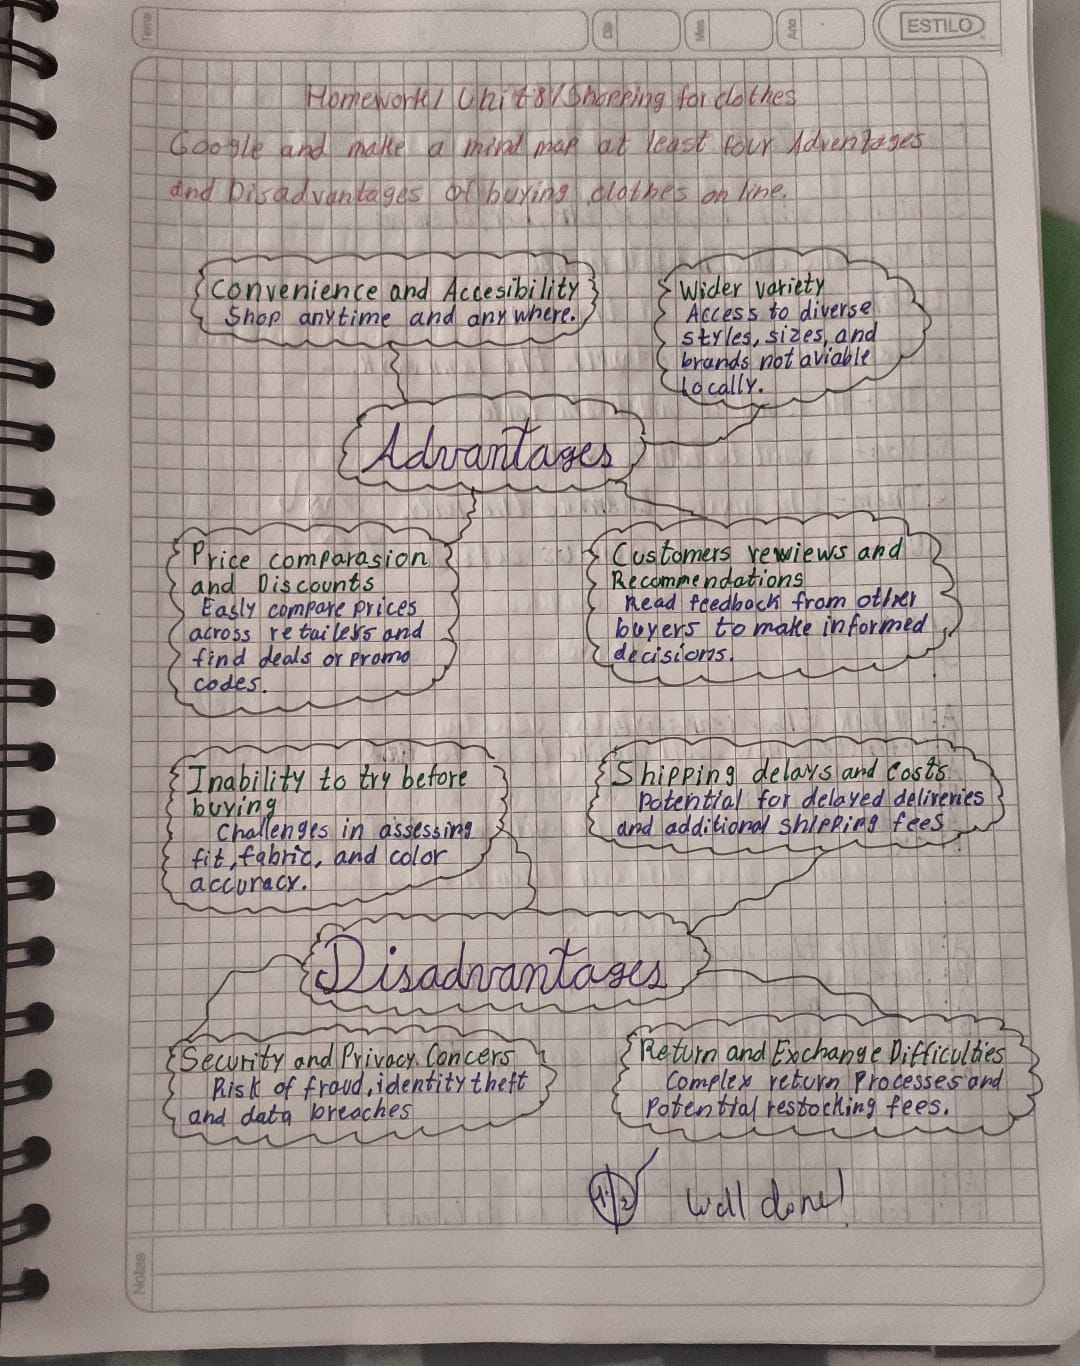 Tema
Dia
Mes
Ano
ESTILO
Homework / Unit 8 / Shopping for clothes
Google and make a mind map at least four Adventages
and Disadvantages of buying clothes on line.
Convenience and Accesibility
Shop anytime and anywhere.
Wider variety
Access to diverse
styles, sizes, and
brands not aviable
locally.
Advantages
Price comparasion
and Discounts
Easly compare prices
across retailers and
find deals or promo
codes.
Customers rewiews and
Recommendations
Read feedback from other
buyers to make informed
decisions.
Inability to try before
buying
Challenges in assessing
fit, fabric, and color
accuracy.
Shipping delays and costs
Potential for delayed deliveries
and additional shipping fees
Disadvantages
Security and Privacy Concers
Risk of fraud, identity theft
and data breaches
Return and Exchange Difficulties
Complex return Processes and
Potential restocking fees.
Well done!
Notas